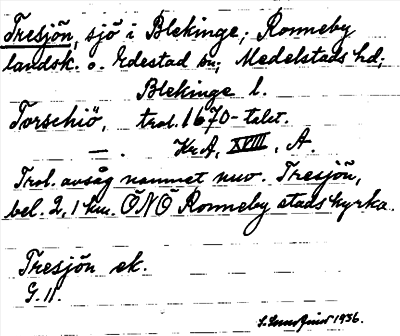 Tresjön, sjö i Blekinge; Ronneby
landsk. o. Edestad sn; Medelstads hd;
Blekinge l.
Torschiö, trol. 1670-talet.
— . Kr.A, XVIII, A.
Trol. avsåg namnet nuv. Tresjön,
bel. 2,1 km. ÖNÖ Ronneby stadskyrka.
Tresjön ek.
G. 11.
1936.